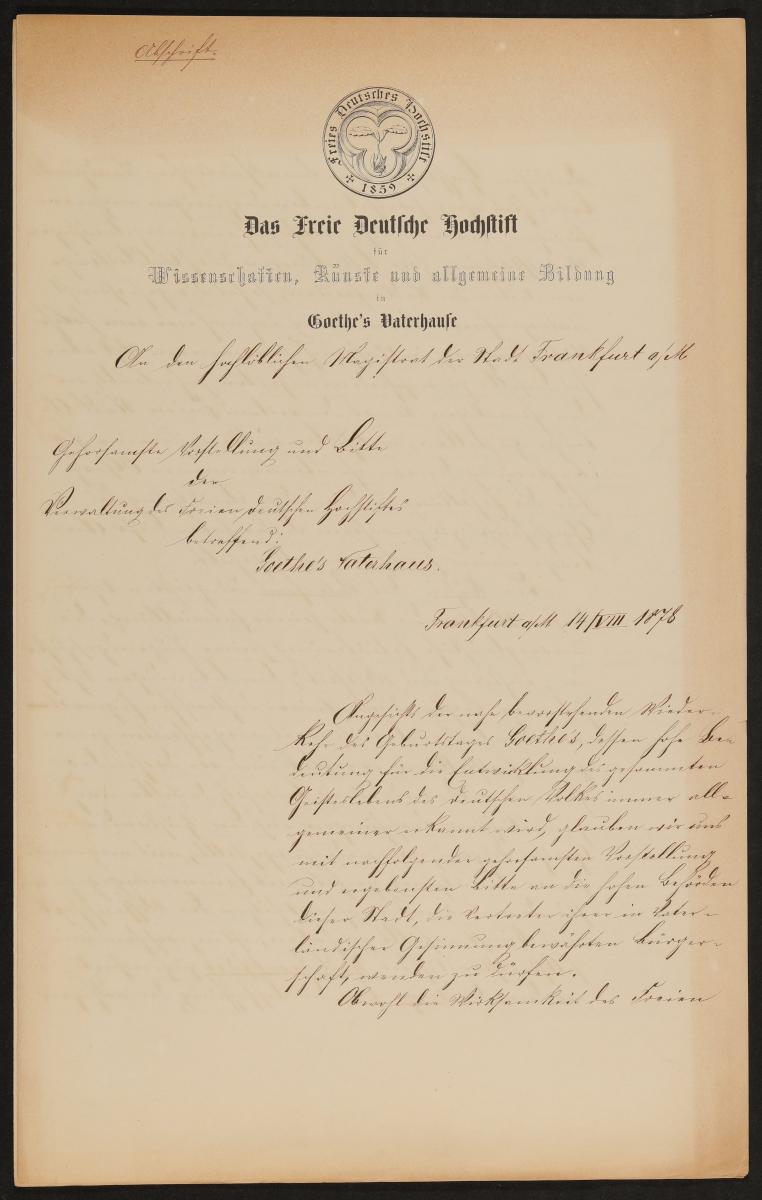 Abschrift.
Freies Deutsches Hochstift
1859
Das Freie Deutsche Hochstift
für
Wissenschaften, Künste und allgemeine Bildung
in
Goethe's Vaterhause
An den hochlöblichen Magistrat der Stadt Frankfurt a/M
Gehorsamste Vorstellung und Bitte
der
Verwaltung des Freien Deutschen Hochstiftes
betreffend:
Goethe's Vaterhaus.
Frankfurt a/M 14/VIII 1878
Angesichts der nahe bevorstehenden Wieder-
kehr des Geburtstages Goethe's, dessen hohe Be-
deutung für die Entwicklung des gesammten
Geisteslebens des deutschen Volkes immer all-
gemeiner erkannt wird, glauben wir uns
mit nachfolgender gehorsamsten Vorstellung
und ergebensten Bitte an die hohen Behörden
dieser Stadt, die Vertreter ihrer in vater-
ländischer Gesinnung bewährten Bürger-
schaft, wenden zu dürfen.
Obwohl die Wirksamkeit des Freien